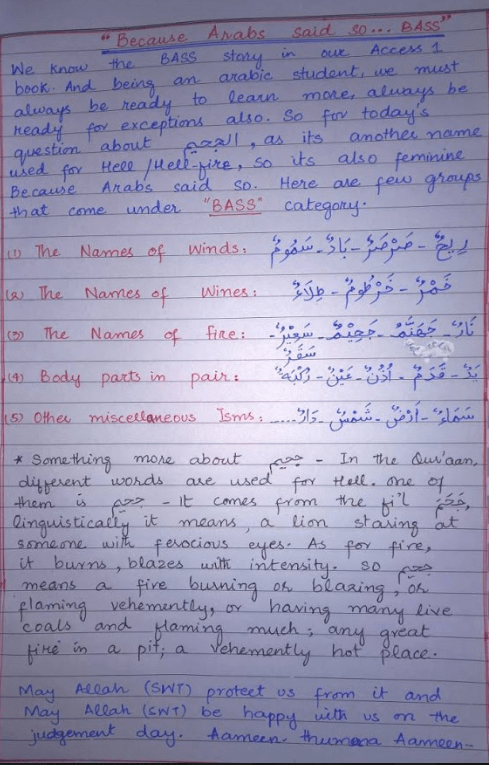 "Because Arabs said so... BASS"
We know the BASS story in our Access 1
book. And being an arabic student, we must
always be ready to learn more, always be
ready for exceptions also. So for today's
question about الجحيم, as its another name
used for Hell/Hell-fire, so its also feminine
Because Arabs said so. Here are few groups
that come under "BASS" category.
(1) The Names of Winds: رِيحٌ - صَرْصَرٌ - بَادٌ - سَمُومٌ
(2) The Names of Wines: خَمْرٌ - خَرْطُومٌ - طِلَاءٌ
(3) The Names of fire: نَارٌ - جَهَنَّمُ - جَحِيْمٌ - سَعِيْرٌ -
سَقَرُ
(4) Body parts in pair: يَدٌ - قَدَمٌ - أُذُنٌ - عَيْنٌ - رُكْبَةٌ
(5) Other miscellaneous Isms: سَمَاءٌ - أَرْضٌ - شَمْسٌ - دَارٌ.....
* Something more about جحيم - In the Qur'aan,
different words are used for Hell. one of
them is جحيم - It comes from the fi'l جَحَمَ,
linguistically it means, a lion staring at
someone with ferocious eyes. As for fire,
it burns, blazes with intensity. so جحيم
means a fire burning or blazing, or
flaming vehemently, or having many live
coals and flaming much; any great
fire in a pit; a vehemently hot place.
May Allah (SWT) protect us from it and
May Allah (SWT) be happy with us on the
judgement day. Aameen. thumma Aameen-